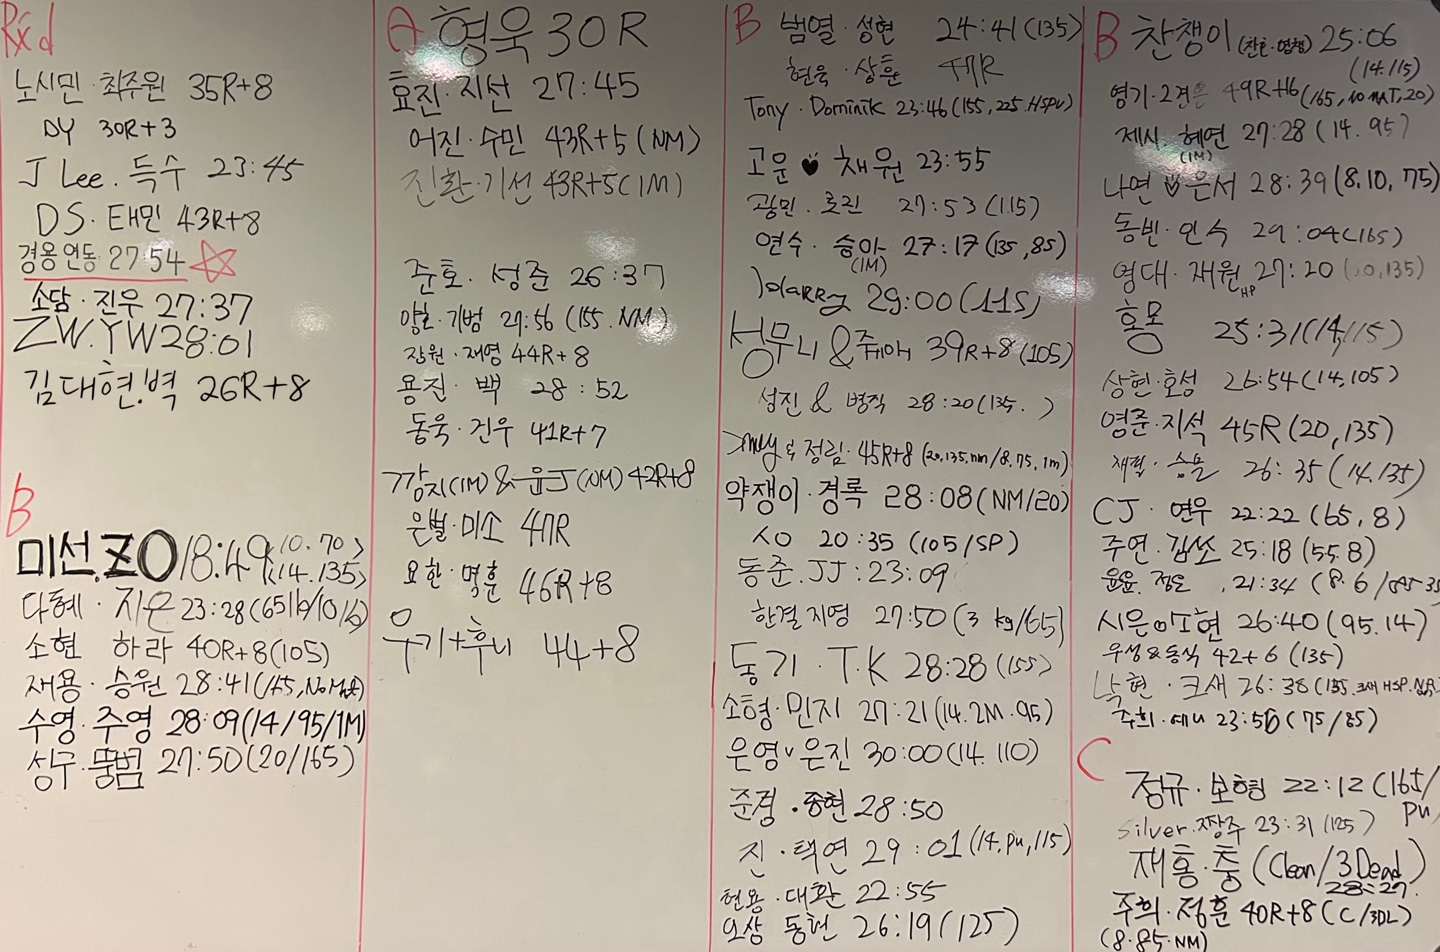 Rxd
노시민 · 최주원 35R+8
DY 30R+3
J Lee . 득수 23:45
DS · 태민 43R+8
경용 연동 27:54
소담 · 진우 27:37
ZW.YW 28:01
김대현.벽 26R+8
B
미선.ZO 18:49 (10.70) (14.135)
다혜 · 지은 23:28 (65lb/10lb)
소현 하라 40R+8 (105)
재용 · 승원 28:41
수영 · 주영 28:09 (14/95/1M)
성구 · 뚱범 27:50 (20/165)
A 형욱 30R
효진 · 지선 27:45
어진 · 수민 43R+5 (NM)
진환 · 기선 43R+5 (1M)
준호 · 성준 26:37
기범 27:56 (155.NM)
장원 · 재영 44R+8
용진 · 백 28:52
동욱 · 건우 41R+7
깜지 (1M) & 윤J (NM) 42R+8
은별 · 미소 47R
요한 · 명훈 46R+8
우기+후니 44+8
B 범열 · 성현 24:41 (135)
현욱 · 상훈 47R
Tony · Dominik 23:46 (155, 225.HSPU)
고운 ♥ 채원 23:55
광민 . 로진 27:53 (115)
연수 · 승아 (1M) 27:17 (135,85)
Harry 29:00 (115)
성무니 & 쥬아 39R+8 (105)
성진 & 병직 28:20 (135. )
& 정림 · 45R+8 (20,135,nm/8,75,1m)
약쟁이 · 경록 28:08 (NM/20)
20:35 (105/SP)
동준 . JJ : 23:09
한결 지영 27:50 (3kg/65)
동기 . T.K 28:28 (155)
소형 · 민지 27:21 (14.2M.95)
은영 v 은진 30:00 (14.110)
준경 · 종현 28:50
진 · 택연 29:01 (14,pu,115)
현용 · 대환 22:55
오상 동현 26:19 (125)
B 찬쟁이 25:06
(14.115)
영기 · 49R+16
제시 · 혜연 (1M) 27:28 (14.95)
나연 ♥ 은서 28:39 (8,10,75)
동빈 · 인수 29:04 (165)
영대 · 재원 27:20 (20,135)
홍몽 25:31 (14,115)
상현 · 호성 26:54 (14,105)
영준 · 지석 45R (20,135)
26:35 (14.135)
CJ · 연우 22:22 (65,8)
주연 · 김쏘 25:18 (55.8)
윤윤 . 정은 . 21:34
시은 소현 26:40 (95.14)
우성 & 동식 42+6 (135)
낙현 · 크새 26:38
주희 · 예니 23:56 (75/85)
C
정규 · 보형 22:12 (165/
pu)
silver · 짱주 23:31 (125)
재홍 · 충 (Clean/3Dead)
28:27
주희 · 정훈 40R+8 (C/3DL)
(8.85.NM)